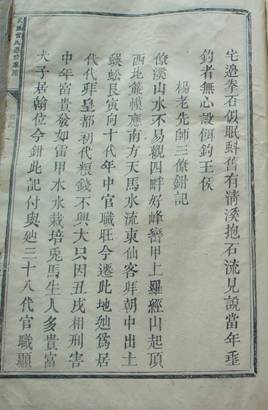 宅邊拳石似眠牛舊有清溪抱石流見說當年垂
釣者無心設餌釣王侯
楊老先師三僚鉗記
僚溪山水不易觀四畔好峰巒甲上羅經山起頂
西北廉模應南方天馬水流東仙客拜朝中出土
蜈蚣艮寅向十代年中官職旺今遷此地勉爲居
代代拜皇都初代根錢不興大只因丑戌相刑害
中年富貴發如雷甲水水栽培兎馬生人多貴富
大子居翰位今鉗此記付與廹三十八代官職顯